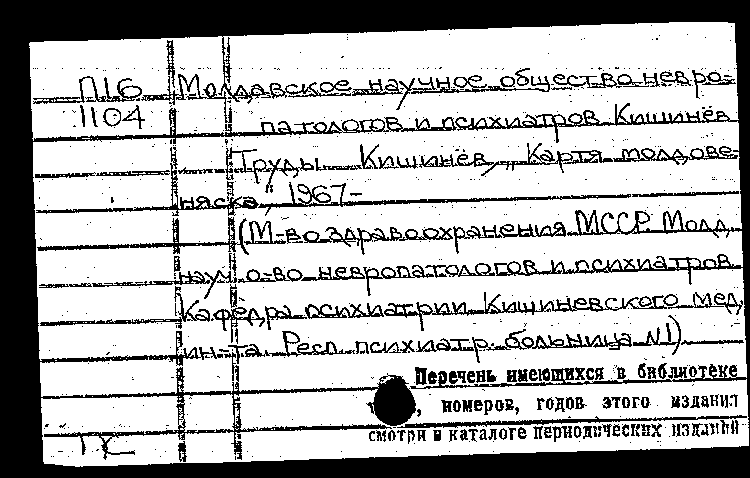 П16 Молдавское научное общество невро-
1104 патологов и психиатров Кишинёв
Труды. Кишинёв, „Картя молдове-
няска", 1967-
(М-во здравоохранения МССР. Молд.
науч. о-во невропатологов и психиатров.
Кафедра психиатрии Кишиневского мед.
ин-та. Респ. психиатр. больница N1)
Перечень имеющихся в библиотеке
, номеров, годов этого издания
смотри в каталоге периодических изданий